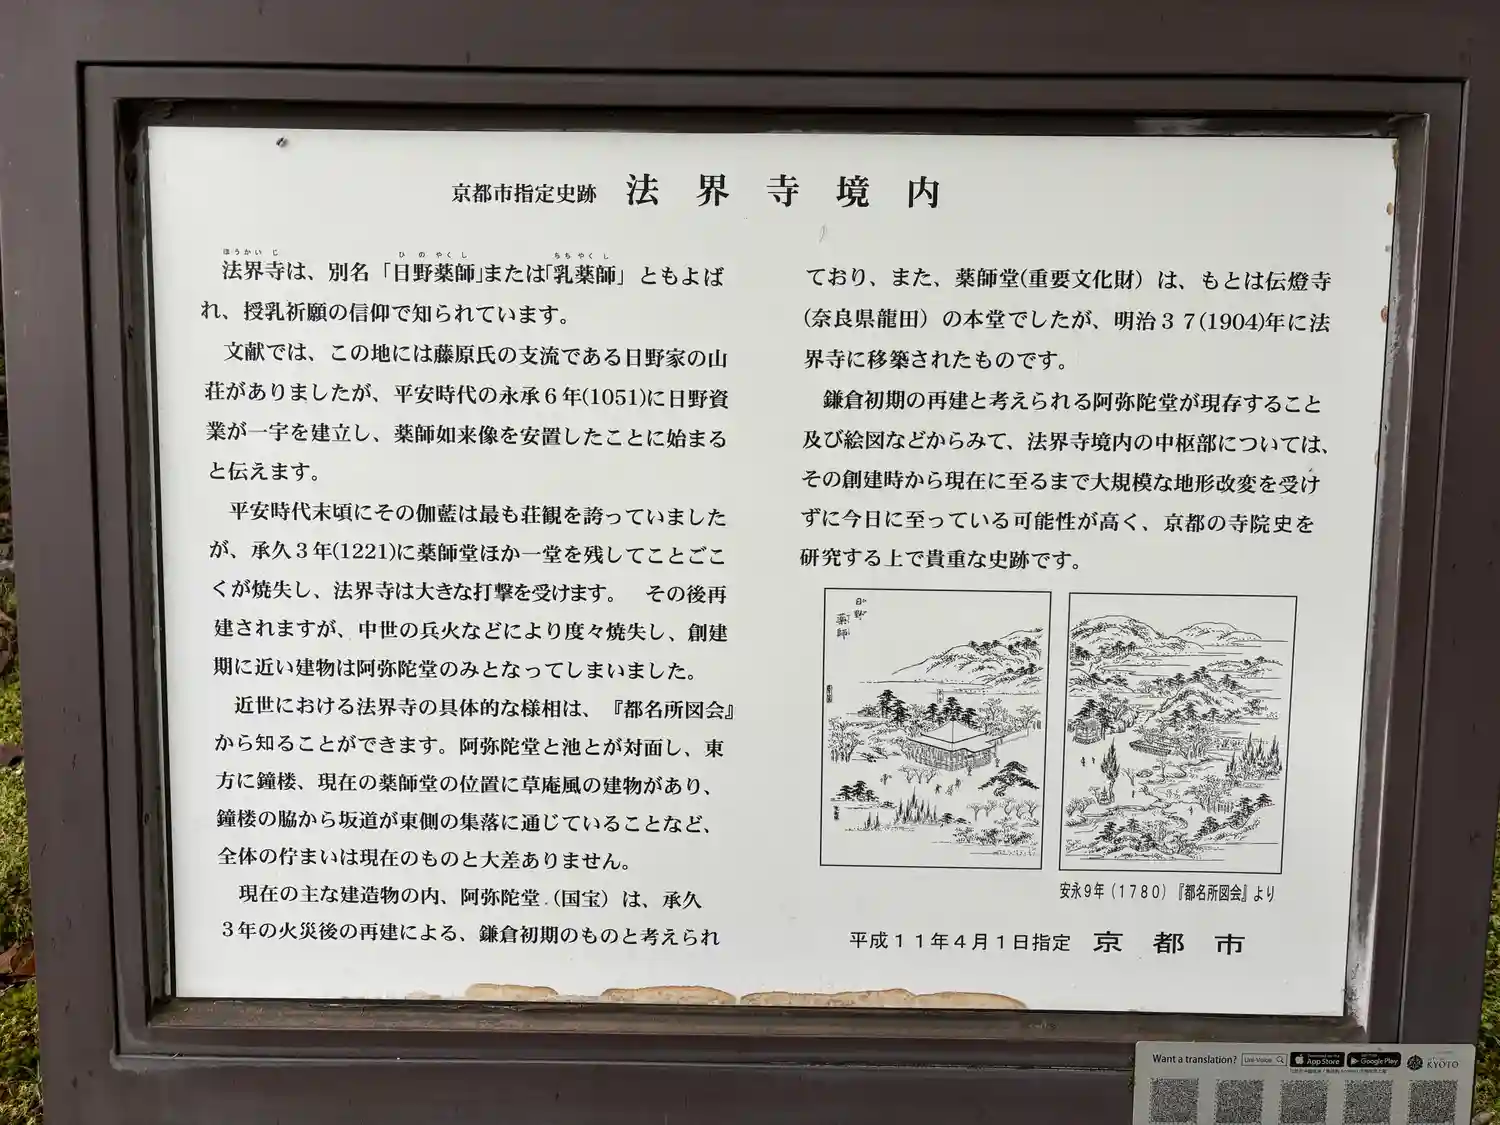 京都市指定史跡 法界寺境内
ほうかいじ ひのやくし ちちやくし
法界寺は、別名「日野薬師」または「乳薬師」ともよば
れ、授乳祈願の信仰で知られています。
文献では、この地には藤原氏の支流である日野家の山
荘がありましたが、平安時代の永承6年(1051)に日野資
業が一宇を建立し、薬師如来像を安置したことに始まる
と伝えます。
平安時代末頃にその伽藍は最も荘観を誇っていました
が、承久3年(1221)に薬師堂ほか一堂を残してことごと
くが焼失し、法界寺は大きな打撃を受けます。 その後再
建されますが、中世の兵火などにより度々焼失し、創建
期に近い建物は阿弥陀堂のみとなってしまいました。
近世における法界寺の具体的な様相は、『都名所図会』
から知ることができます。阿弥陀堂と池とが対面し、東
方に鐘楼、現在の薬師堂の位置に草庵風の建物があり、
鐘楼の脇から坂道が東側の集落に通じていることなど、
全体の佇まいは現在のものと大差ありません。
現在の主な建造物の内、阿弥陀堂(国宝)は、承久
3年の火災後の再建による、鎌倉初期のものと考えられ
ており、また、薬師堂(重要文化財)は、もとは伝燈寺
(奈良県龍田)の本堂でしたが、明治37(1904)年に法
界寺に移築されたものです。
鎌倉初期の再建と考えられる阿弥陀堂が現存すること
及び絵図などからみて、法界寺境内の中枢部については、
その創建時から現在に至るまで大規模な地形改変を受け
ずに今日に至っている可能性が高く、京都の寺院史を
研究する上で貴重な史跡です。
日野
薬師
安永9年(1780)『都名所図会』より
平成11年4月1日指定 京都市
Want a translation? Uni-Voice App Store Google Play KYOTO